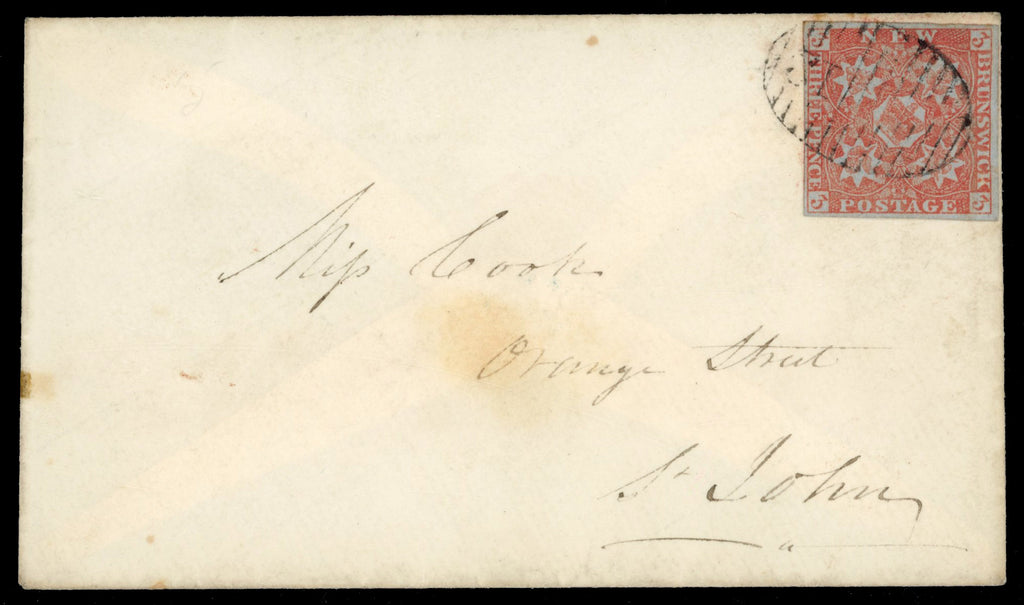 NEW
BRUNSWICK
POSTAGE
THREE PENCE
3 3 3 3
Miss Cook
Orange Street
St John